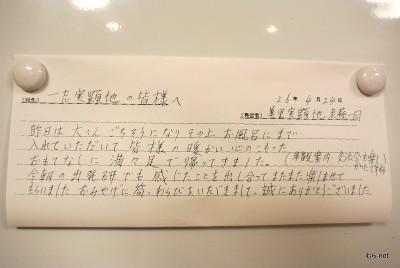 一志実顕地の皆様へ
26年4月24日
美里実顕地 一同
昨日は大へんごちそうになりその上お風呂にまで
入れていただいて皆様の暖かい心のこもった
おもてなしに満々足で帰ってきました。
今朝の出発研でも感じたことを出し合ってまたまた楽しませて
もらいました おみやげに筍、わらびもいただきまして、誠にありがとうございました
むら-net